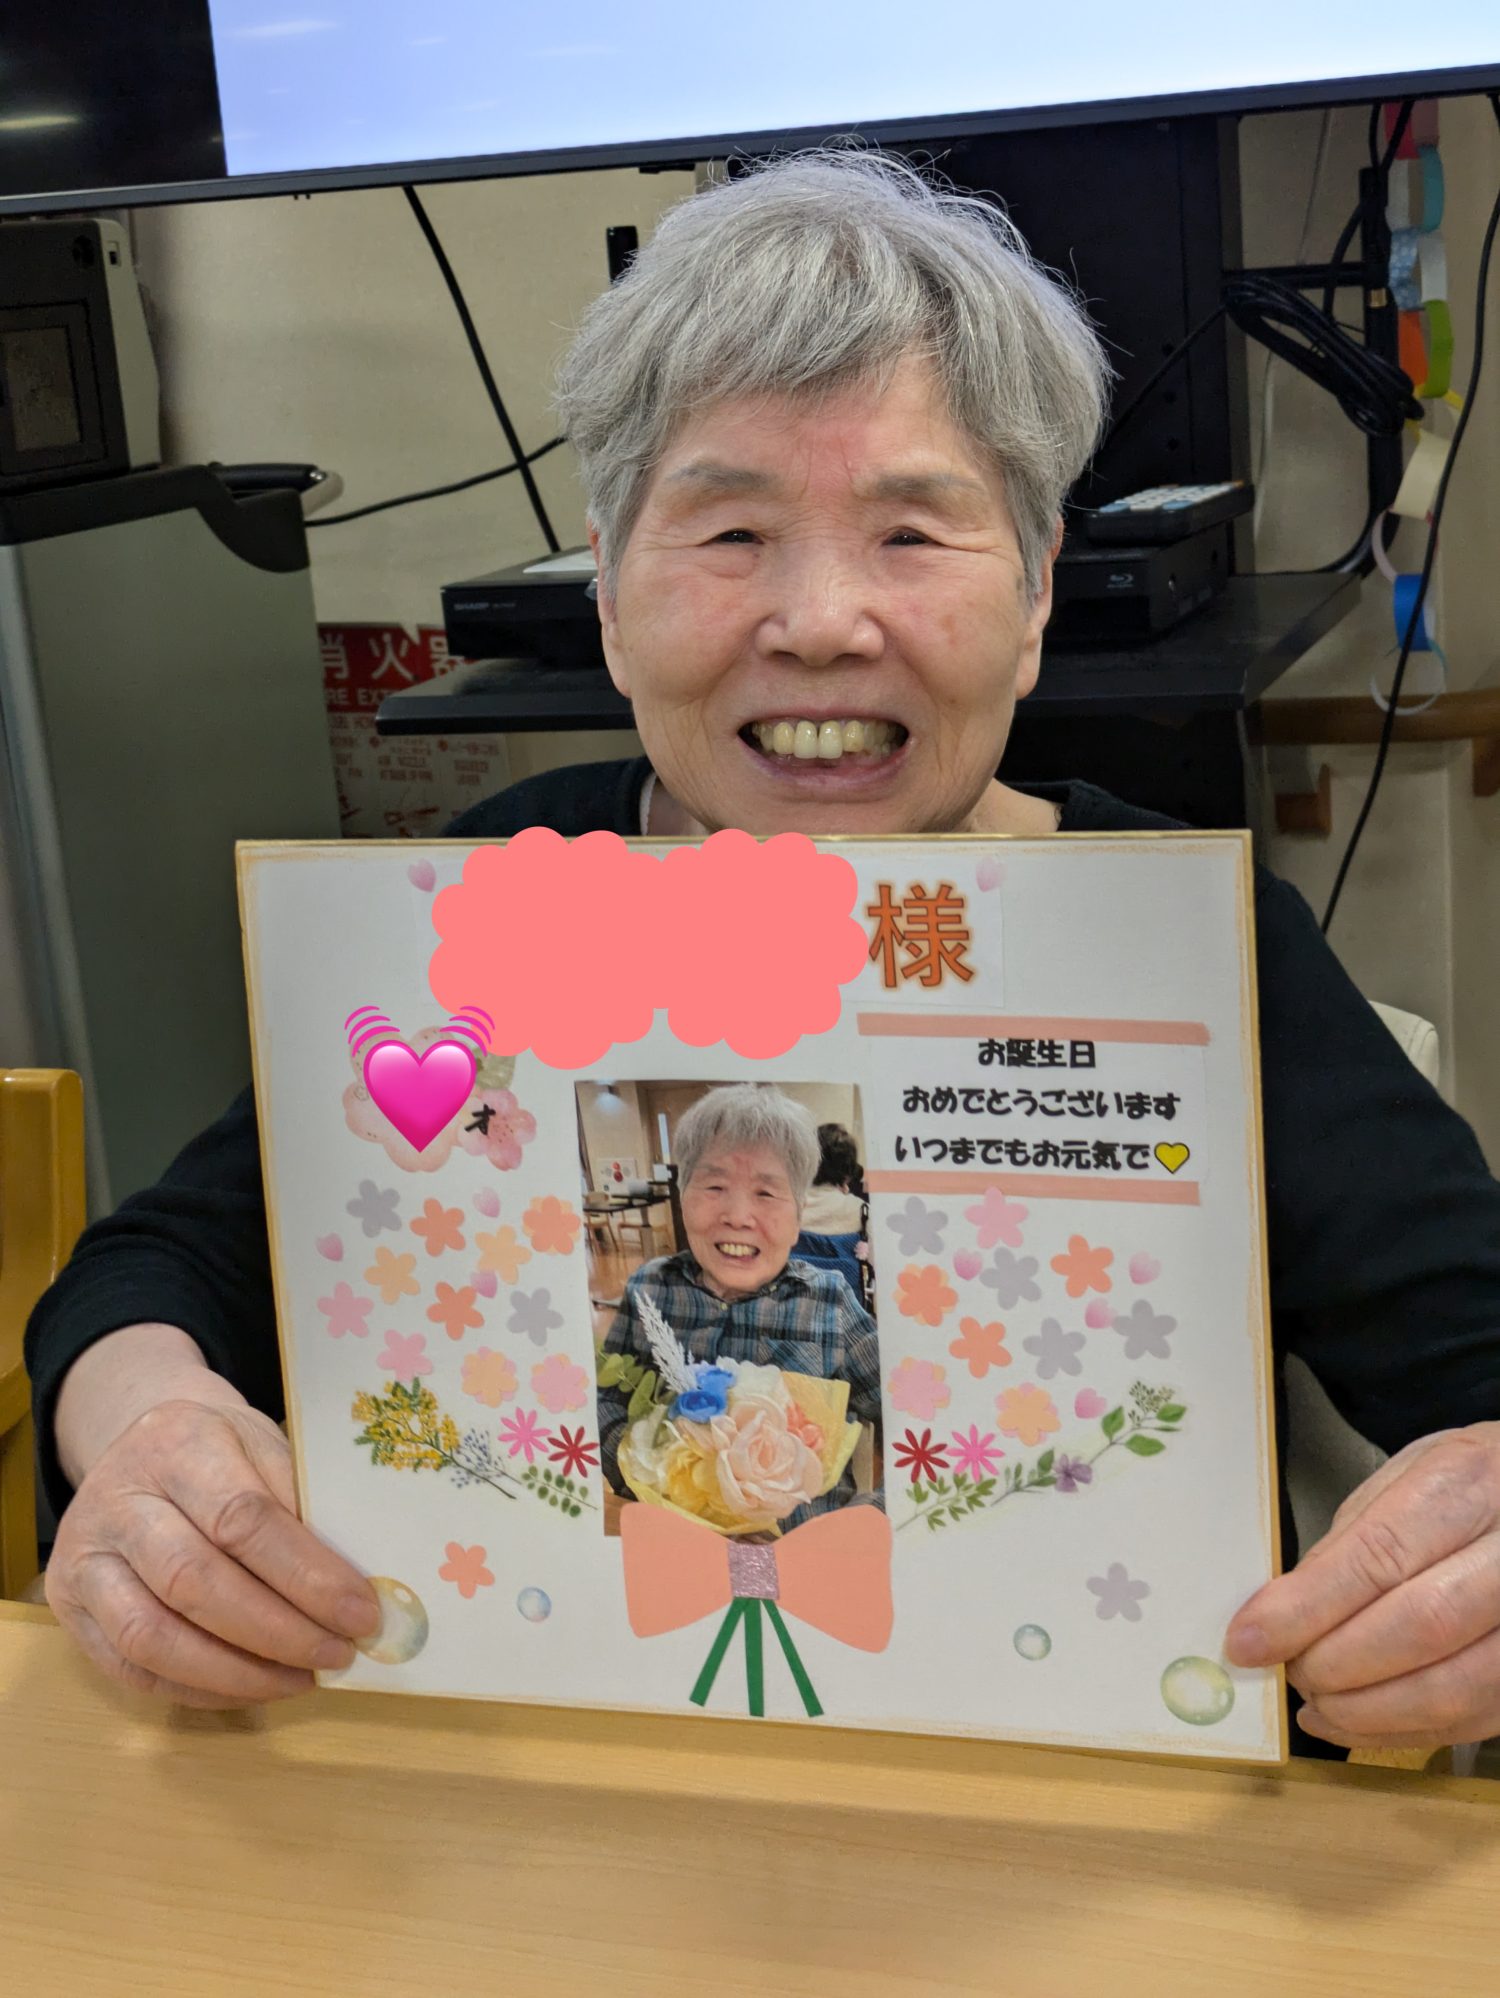 SHARP
消火器
様
お誕生日
おめでとうございます
いつまでもお元気で
才